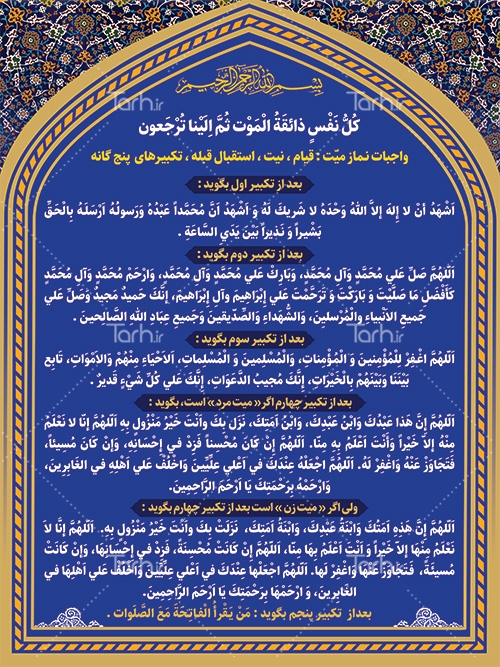 Tarh.ir
Tarh.ir
بِسْمِ اللهِ الرَّحْمنِ الرَّحیمِ
کُلُّ نَفْسٍ ذائِقَةُ الْمَوْت ثُمَّ اِلَیْنا تُرْجَعون
واجبات نماز میّت : قیام ، نیت ، استقبال قبله ، تکبیرهای پنج گانه
بعد از تکبیر اول بگوید :
اَشْهَدُ أنْ لا إلهَ إلاَّ اللهُ وَحْدَهُ لا شَریكَ لَهُ وَ اَشْهَدُ أنَّ مُحَمَّداً عَبْدُهُ وَرَسولُهُ أرْسَلَهُ بِالْحَقِّ
بَشْیراً وَ نَذیراً بَیْنَ یَدَيِ السَّاعَةِ .
بعد از تکبیر دوم بگوید :
اَللَّهُمَّ صَلِّ عَلي مُحَمَّدٍ وَآلِ مُحَمَّدٍ، وَبَارِكْ عَلي مُحَمَّدٍ وَآلِ مُحَمَّدٍ، وَارْحَمْ مُحَمَّدٍ وَآلِ مُحَمَّدٍ
کَأفْضَلِ مَا صَلَّیْتَ وَ بَارَکْتَ وَ تَرَحَّمْتَ عَلي إبْراهیمَ وَآلِ إبْراهیمَ، إنَّكَ حَمیدٌ مَجیدٌ وَصَلِّ عَلي
جَمیعِ الأنْبیاءِ وَالْمُرْسَلینَ، وَالشُّهَداءِ وَالصِّدّیقینَ وَجَمیعِ عِبَادِ اللهِ الصَّالِحینَ .
بعد از تکبیر سوم بگوید :
اَللَّهُمَّ اغْفِرْ لِلْمُؤْمِنینَ وَ الْمُؤْمِناتِ، وَالْمُسْلِمینَ وَ الْمُسْلِماتِ، اَلاَحْیَاءِ مِنْهُمْ وَالاَمْوَاتِ، تَابِع
بَیْنَنَا وَبَیْنَهُمْ بِالْخَیْرَاتِ، إنَّكَ مُجیبُ الدَّعَوَاتِ، إنَّكَ عَلي کُلِّ شَيْءٍ قَدیرٌ .
بعد از تکبیر چهارم اگر« میت مرد» است، بگوید :
اَللَّهُمَّ إنَّ هَذَا عَبْدُكَ وَابْنُ عَبْدِكَ، وَابْنُ أمَتِكَ، نَزَلَ بِكَ وَأنْتَ خَیْرُ مَنْزُولٍ بِهِ اَللَّهُمَّ إنَّا لا نَعْلَمُ
مِنْهُ إلاَّ خَیْراً وَأنْتَ أعْلَمُ بِهِ مِنَّا. اَللَّهُمَّ إنْ کَانَ مُحْسِناً فَزِدْ في إحْسَانِهِ، وَإنْ کَانَ مُسیئاً،
فَتَجَاوَزْ عَنْهُ وَاغْفِرْ لَهُ. اَللَّهُمَّ اجْعَلْهُ عِنْدَكَ في أعْلي عِلِّیّینَ وَاخْلُفْ عَلي أهْلِهِ في الغَابِرینَ،
وَارْحَمْهُ بِرَحْمَتِكَ یَا أرْحَمَ الرَّاحِمینَ.
ولی اگر « میّت زن » است بعد از تکبیر چهارم بگوید :
اَللَّهُمَّ إنَّ هَذِهِ أمَتُكَ وَابْنَةُ عَبْدِكَ، وَابْنَةُ أمَتِكَ، نَزَلَتْ بِكَ وَأنْتَ خَیْرُ مَنْزُولٍ بِهِ. اَللَّهُمَّ إنَّا لاَ
نَعْلَمُ مِنْهَا إلاَّ خَیْراً وَ أنْتَ أعْلَمُ بِهَا مِنَّا. اَللَّهُمَّ إنْ کَانَتْ مُحْسِنَةً، فَزِدْ في إحْسَانِهَا، وَإنْ کَانَتْ
مُسیئَةً، فَتَجَاوَزْ عَنْهَا وَاغْفِرْ لَهَا. اَللَّهُمَّ اجْعَلْهَا عِنْدَكَ في أعْلي عِلِّیّینَ وَاخْلُفْ عَلي أهْلِهَا في
الغَابِرینَ، وَ ارْحَمْهَا بِرَحْمَتِكَ یَا أرْحَمَ الرَّاحِمینَ.
بعد از تکبیر پنجم بگوید : مَنْ یَقْرَأُ الْفَاتِحَةَ مَعَ الصَّلَوات .